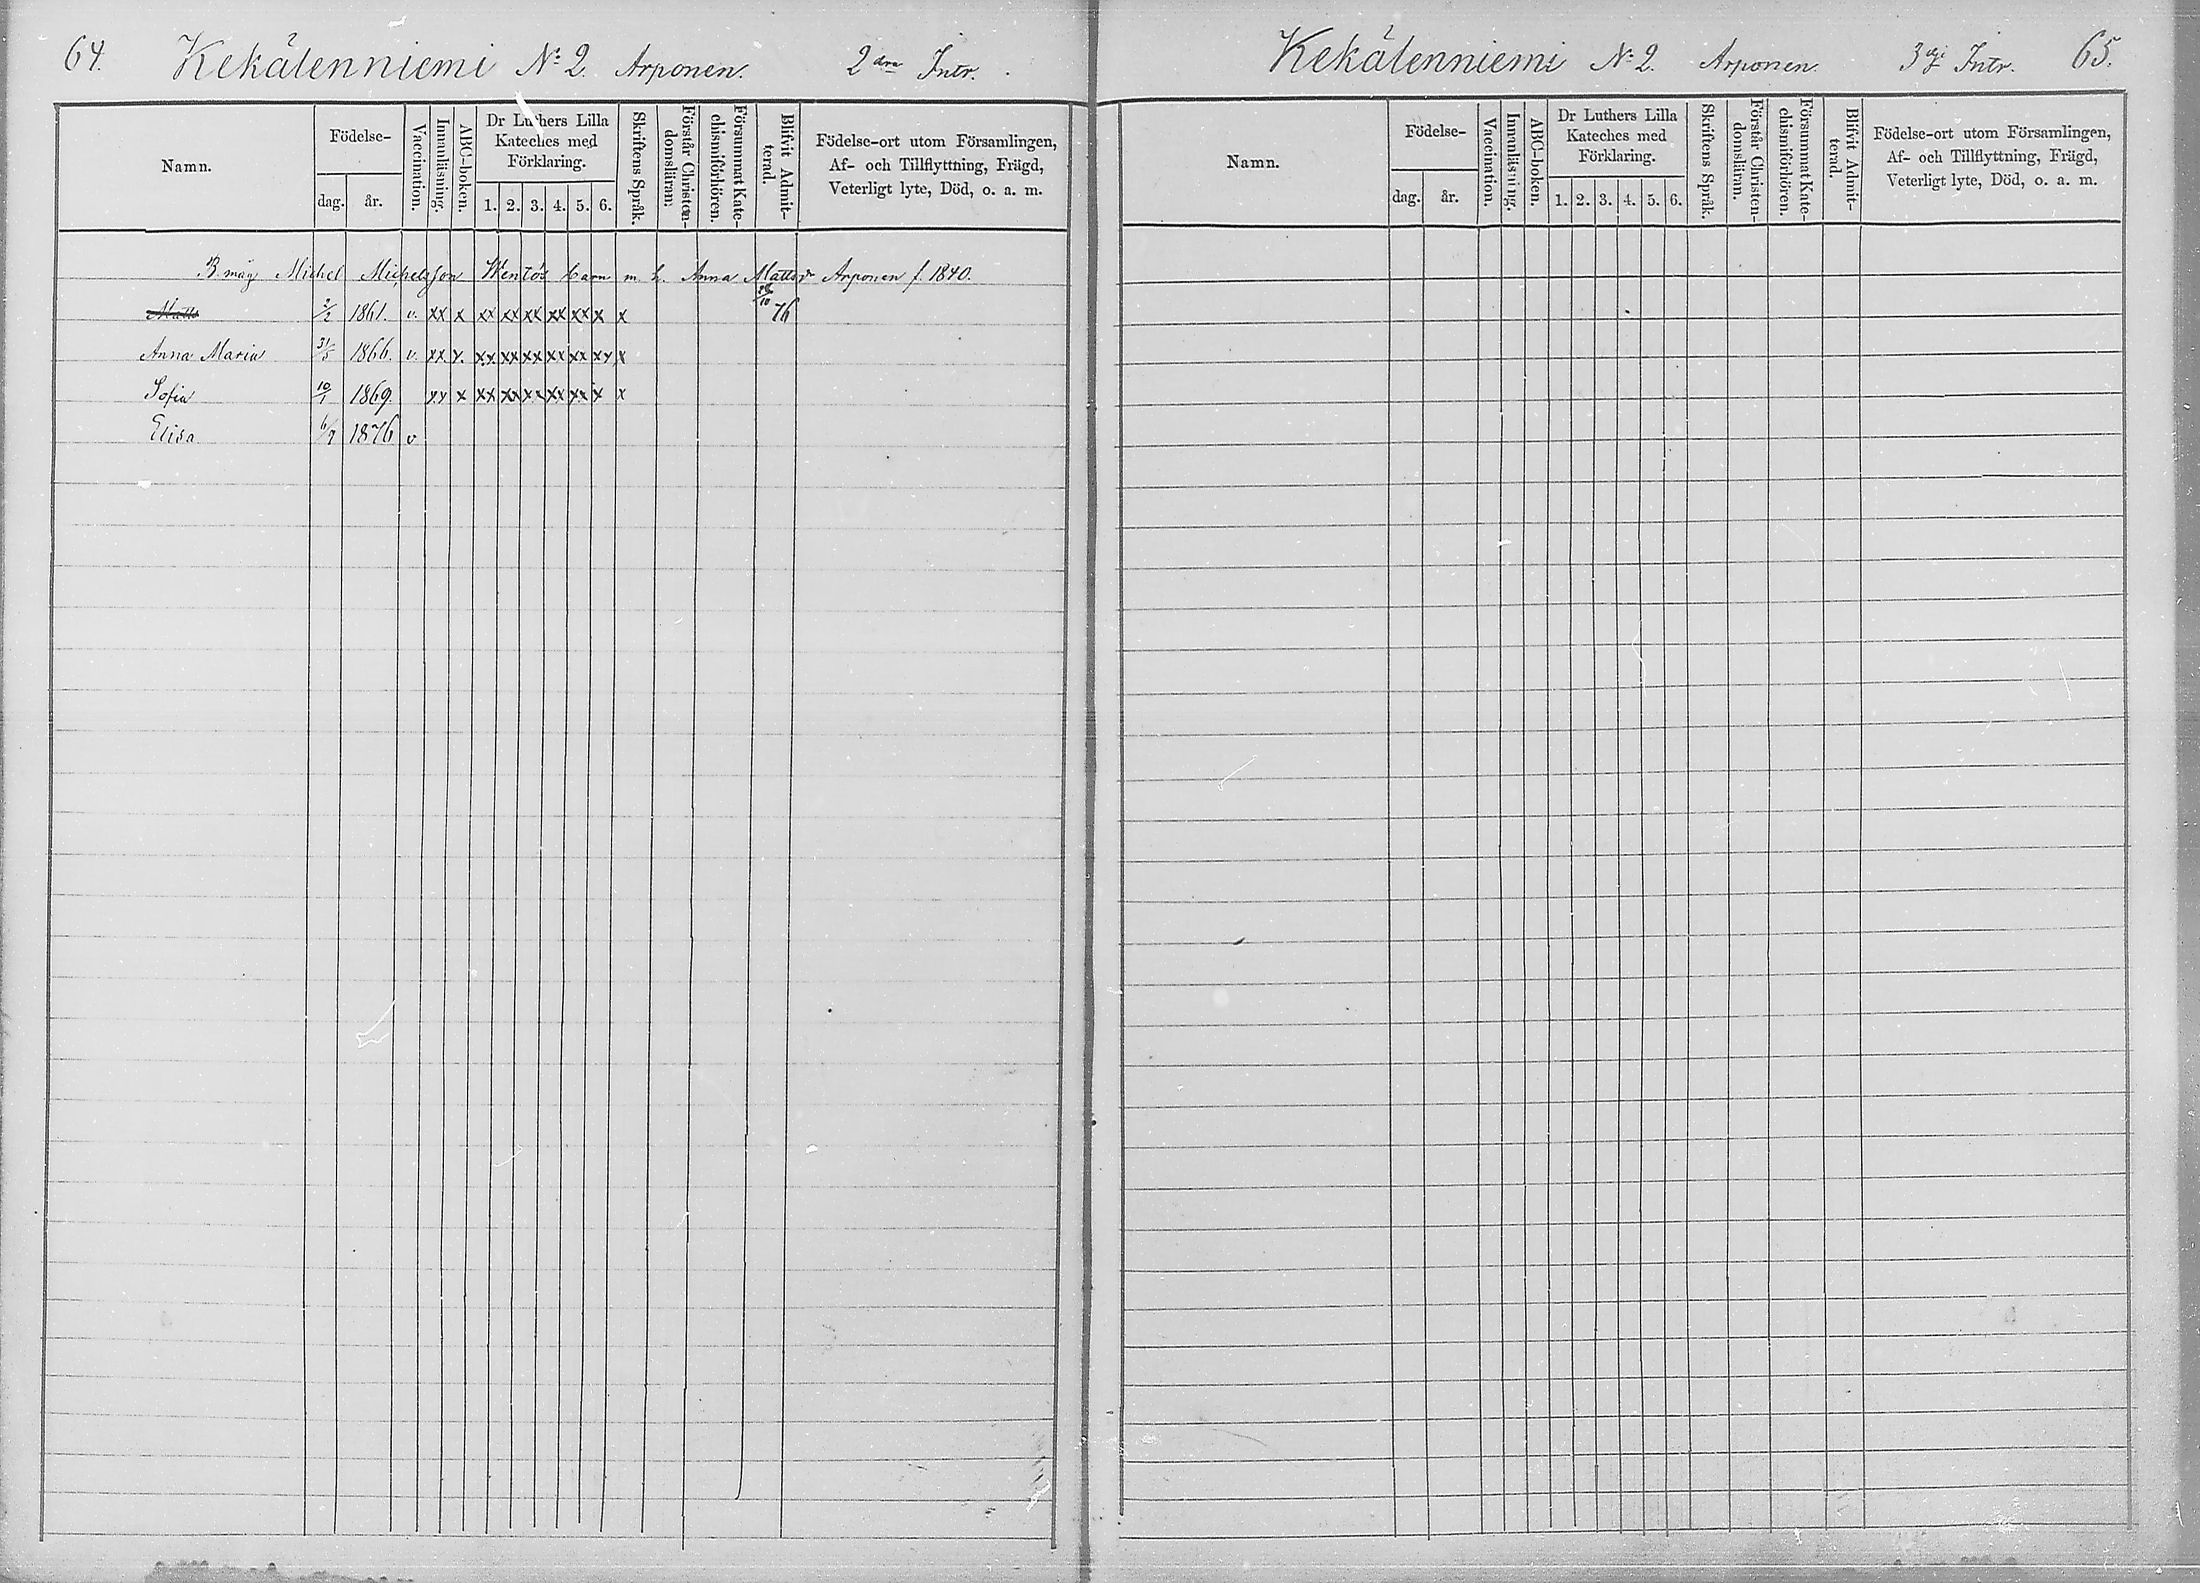 64. Kekälenniemi № 2. Arponen. 2dra Intr.
Namn.
Födelse-
dag. år.
Vaccination.
Innanläsning.
ABC-boken.
Dr Luthers Lilla
Kateches med
Förklaring.
1. 2. 3. 4. 5. 6.
Skriftens Språk.
Förstår Christen-
domsläran.
Försummat Kate-
chismiförhören.
Blifvit Admit-
terad.
Födelse-ort utom Församlingen,
Af- och Tillflyttning, Frägd,
Veterligt lyte, Död, o. a. m.
B. måg Michel Michelsson Wentös barn m. h. Anna Mattsdr Arponen f. 1840.
Matts 2/2 1861. v. xx x xx xx xx xx xx x x 28/10 76
Anna Maria 31/5 1866. v. xx x xx xx xx xx xx xx x
Sofia 10/1 1869. xx x xx xx xx xx xx x x
Elisa 6/7 1876 v
Kekälenniemi № 2. Arponen. 3dje Intr. 65.
Namn.
Födelse-
dag. år.
Vaccination.
Innanläsning.
ABC-boken.
Dr Luthers Lilla
Kateches med
Förklaring.
1. 2. 3. 4. 5. 6.
Skriftens Språk.
Förstår Christen-
domsläran.
Försummat Kate-
chismiförhören.
Blifvit Admit-
terad.
Födelse-ort utom Församlingen,
Af- och Tillflyttning, Frägd,
Veterligt lyte, Död, o. a. m.